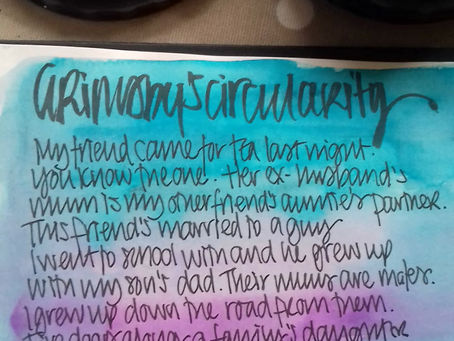 Grimsby's circularity
My friend came for tea last night.
You know the one. Her ex-husband's
mum is my other friend's auntie's partner.
This friend's married to a guy
I went to school with and he grew up
with my son's dad. Their mums are mates.
I grew up down the road from them.
family's daughter